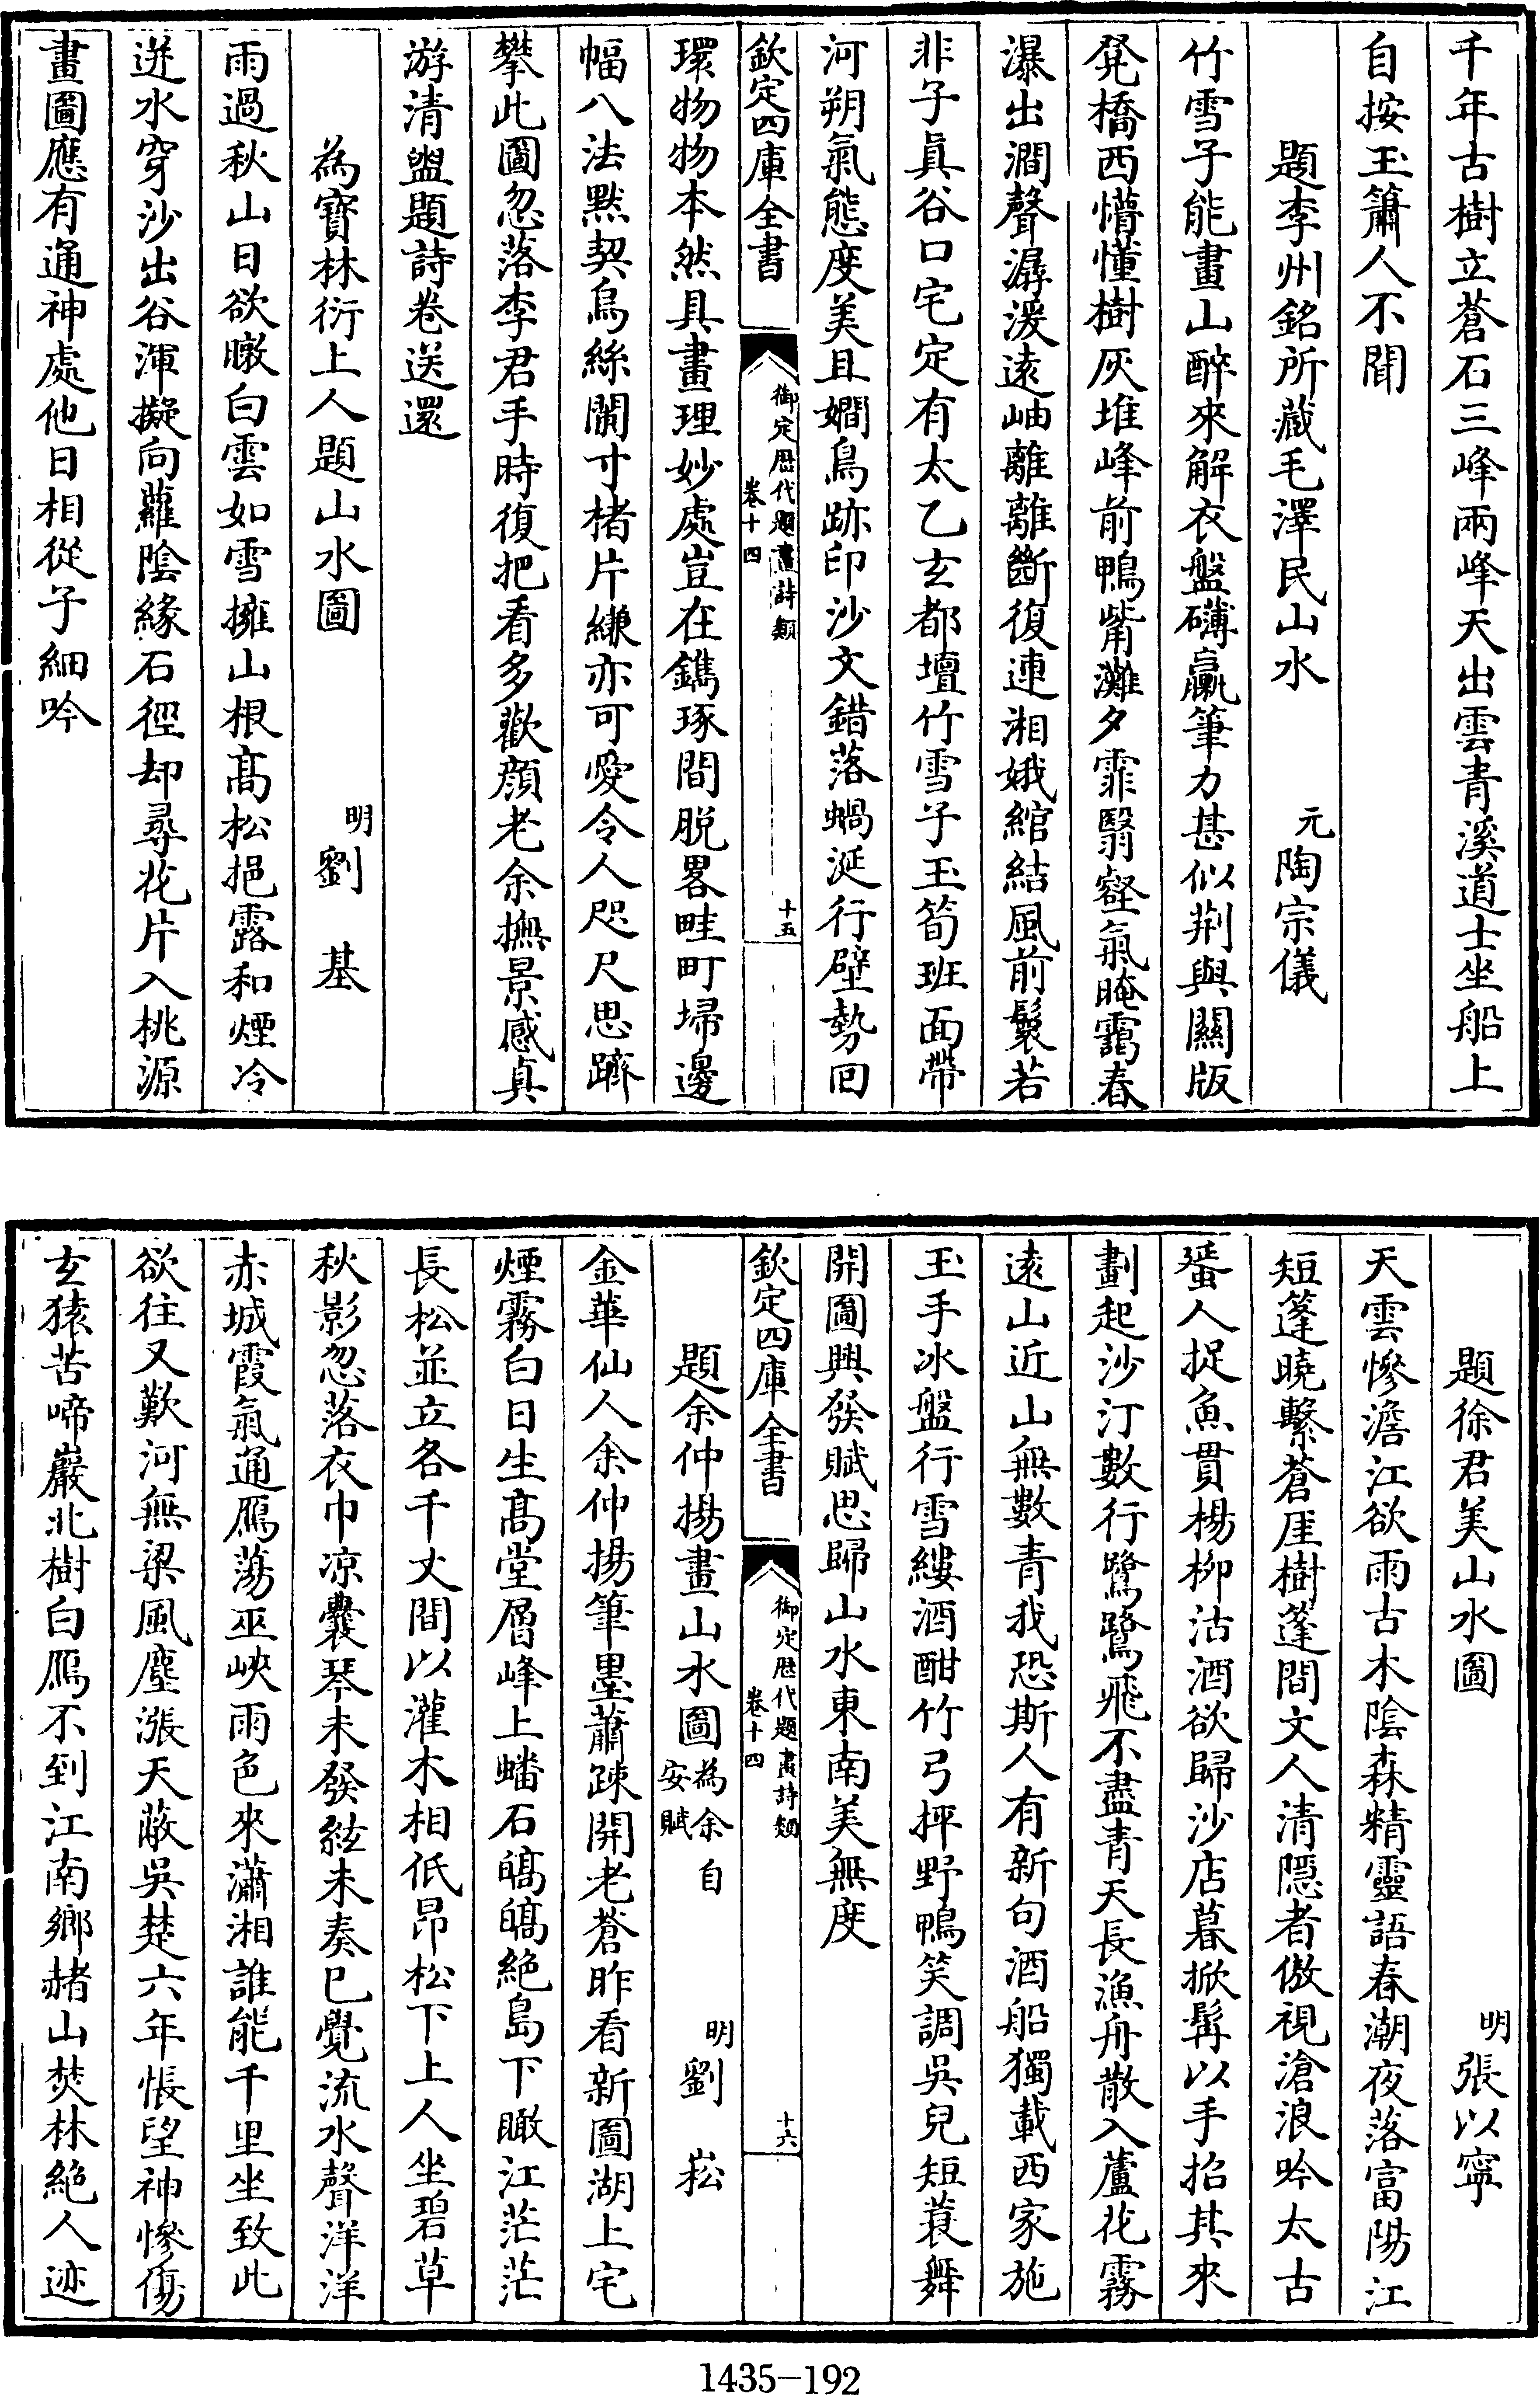 千年古樹立蒼石三峰兩峰天出雲青溪道士坐船上
自按玉簫人不聞
題李州銘所藏毛澤民山水　元陶宗儀
竹雪子能畫山醉來解衣盤礴驘筆力甚似荆與關版
凳橋西懵懂樹灰堆峰前鴨觜灘夕霏翳壑氣晻靄春
瀑出澗聲潺湲遠岫離離斷復連湘娥綰結風前鬟若
非子真谷口宅定有太乙玄都壇竹雪子玉筍班面帶
河朔氣態度美且嫺鳥跡印沙文錯落蝸涎行壁勢回
欽定四庫全書　御定歷代題畫詩類卷十四　十五
環物物本然具畫理妙處豈在鐫琢間脱畧畦町埽邊
幅八法黙契烏絲闌寸楮片縑亦可愛令人咫尺思躋
攀此圖忽落李君手時復把看多歡顔老余撫景感真
游清盥題詩卷送還
為寶林衍上人題山水圖　明劉基
雨過秋山日欲暾白雲如雪擁山根髙松挹露和煙冷
迸水穿沙出谷渾擬向蘿陰緣石徑却尋花片入桃源
畫圖應有通神處他日相從子細吟
題徐君美山水圖　明張以寧
天雲慘澹江欲雨古木陰森精靈語春潮夜落富陽江
短篷曉繫蒼厓樹篷間文人清隱者傲視滄浪吟太古
蜑人捉魚貫楊柳沽酒欲歸沙店暮掀髯以手招其來
劃起沙汀數行鷺鷺飛不盡青天長漁舟散入蘆花霧
遠山近山無數青我恐斯人有新句酒船獨載西家施
玉手冰盤行雪縷酒酣竹弓抨野鴨笑調吳兒短蓑舞
開圖興發賦思歸山水東南美無度
欽定四庫全書　御定歷代題畫詩類卷十四　十六
題余仲揚畫山水圖為余自安賦　明劉崧
金華仙人余仲揚筆墨蕭疎開老蒼昨看新圖湖上宅
煙霧白日生髙堂層峰上蟠石皜皜絶島下瞰江茫茫
長松並立各千丈間以灌木相低昂松下上人坐碧草
秋影忽落衣巾凉囊琴未發絃未奏已覺流水聲洋洋
赤城霞氣通鴈蕩巫峽雨色來瀟湘誰能千里坐致此
欲往又歎河無梁風塵漲天蔽吳楚六年悵望神慘傷
玄猿苦啼巖北樹白鴈不到江南鄉赭山焚林絶人迹
1435-192